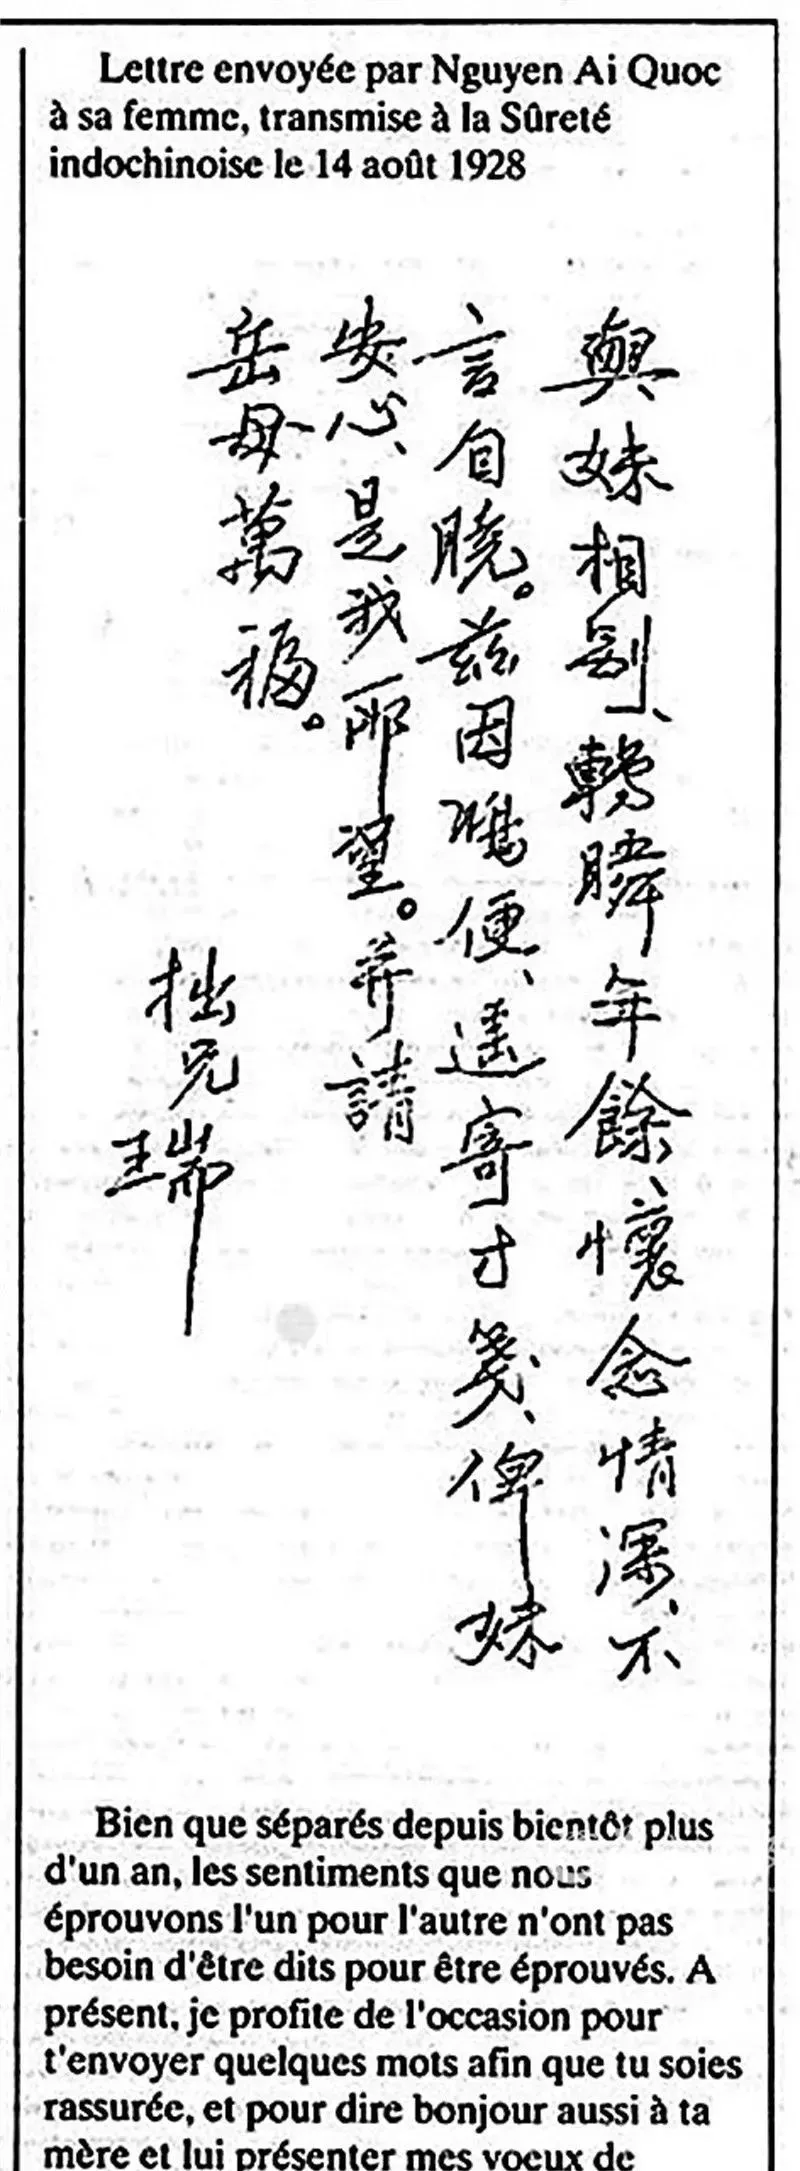 Lettre envoyée par Nguyen Ai Quoc
à sa femme, transmise à la Sûreté
indochinoise le 14 août 1928
與妹相別、轉瞬年餘、懷念情深、不
言自曉。茲因鴻便、遥寄寸箋、俾妹
安心、是我所望。并請
岳母萬福。
拙兄瑞
Bien que séparés depuis bientôt plus
d'un an, les sentiments que nous
éprouvons l'un pour l'autre n'ont pas
besoin d'être dits pour être éprouvés. A
présent, je profite de l'occasion pour
t'envoyer quelques mots afin que tu soies
rassurée, et pour dire bonjour aussi à ta
mère et lui présenter mes voeux de